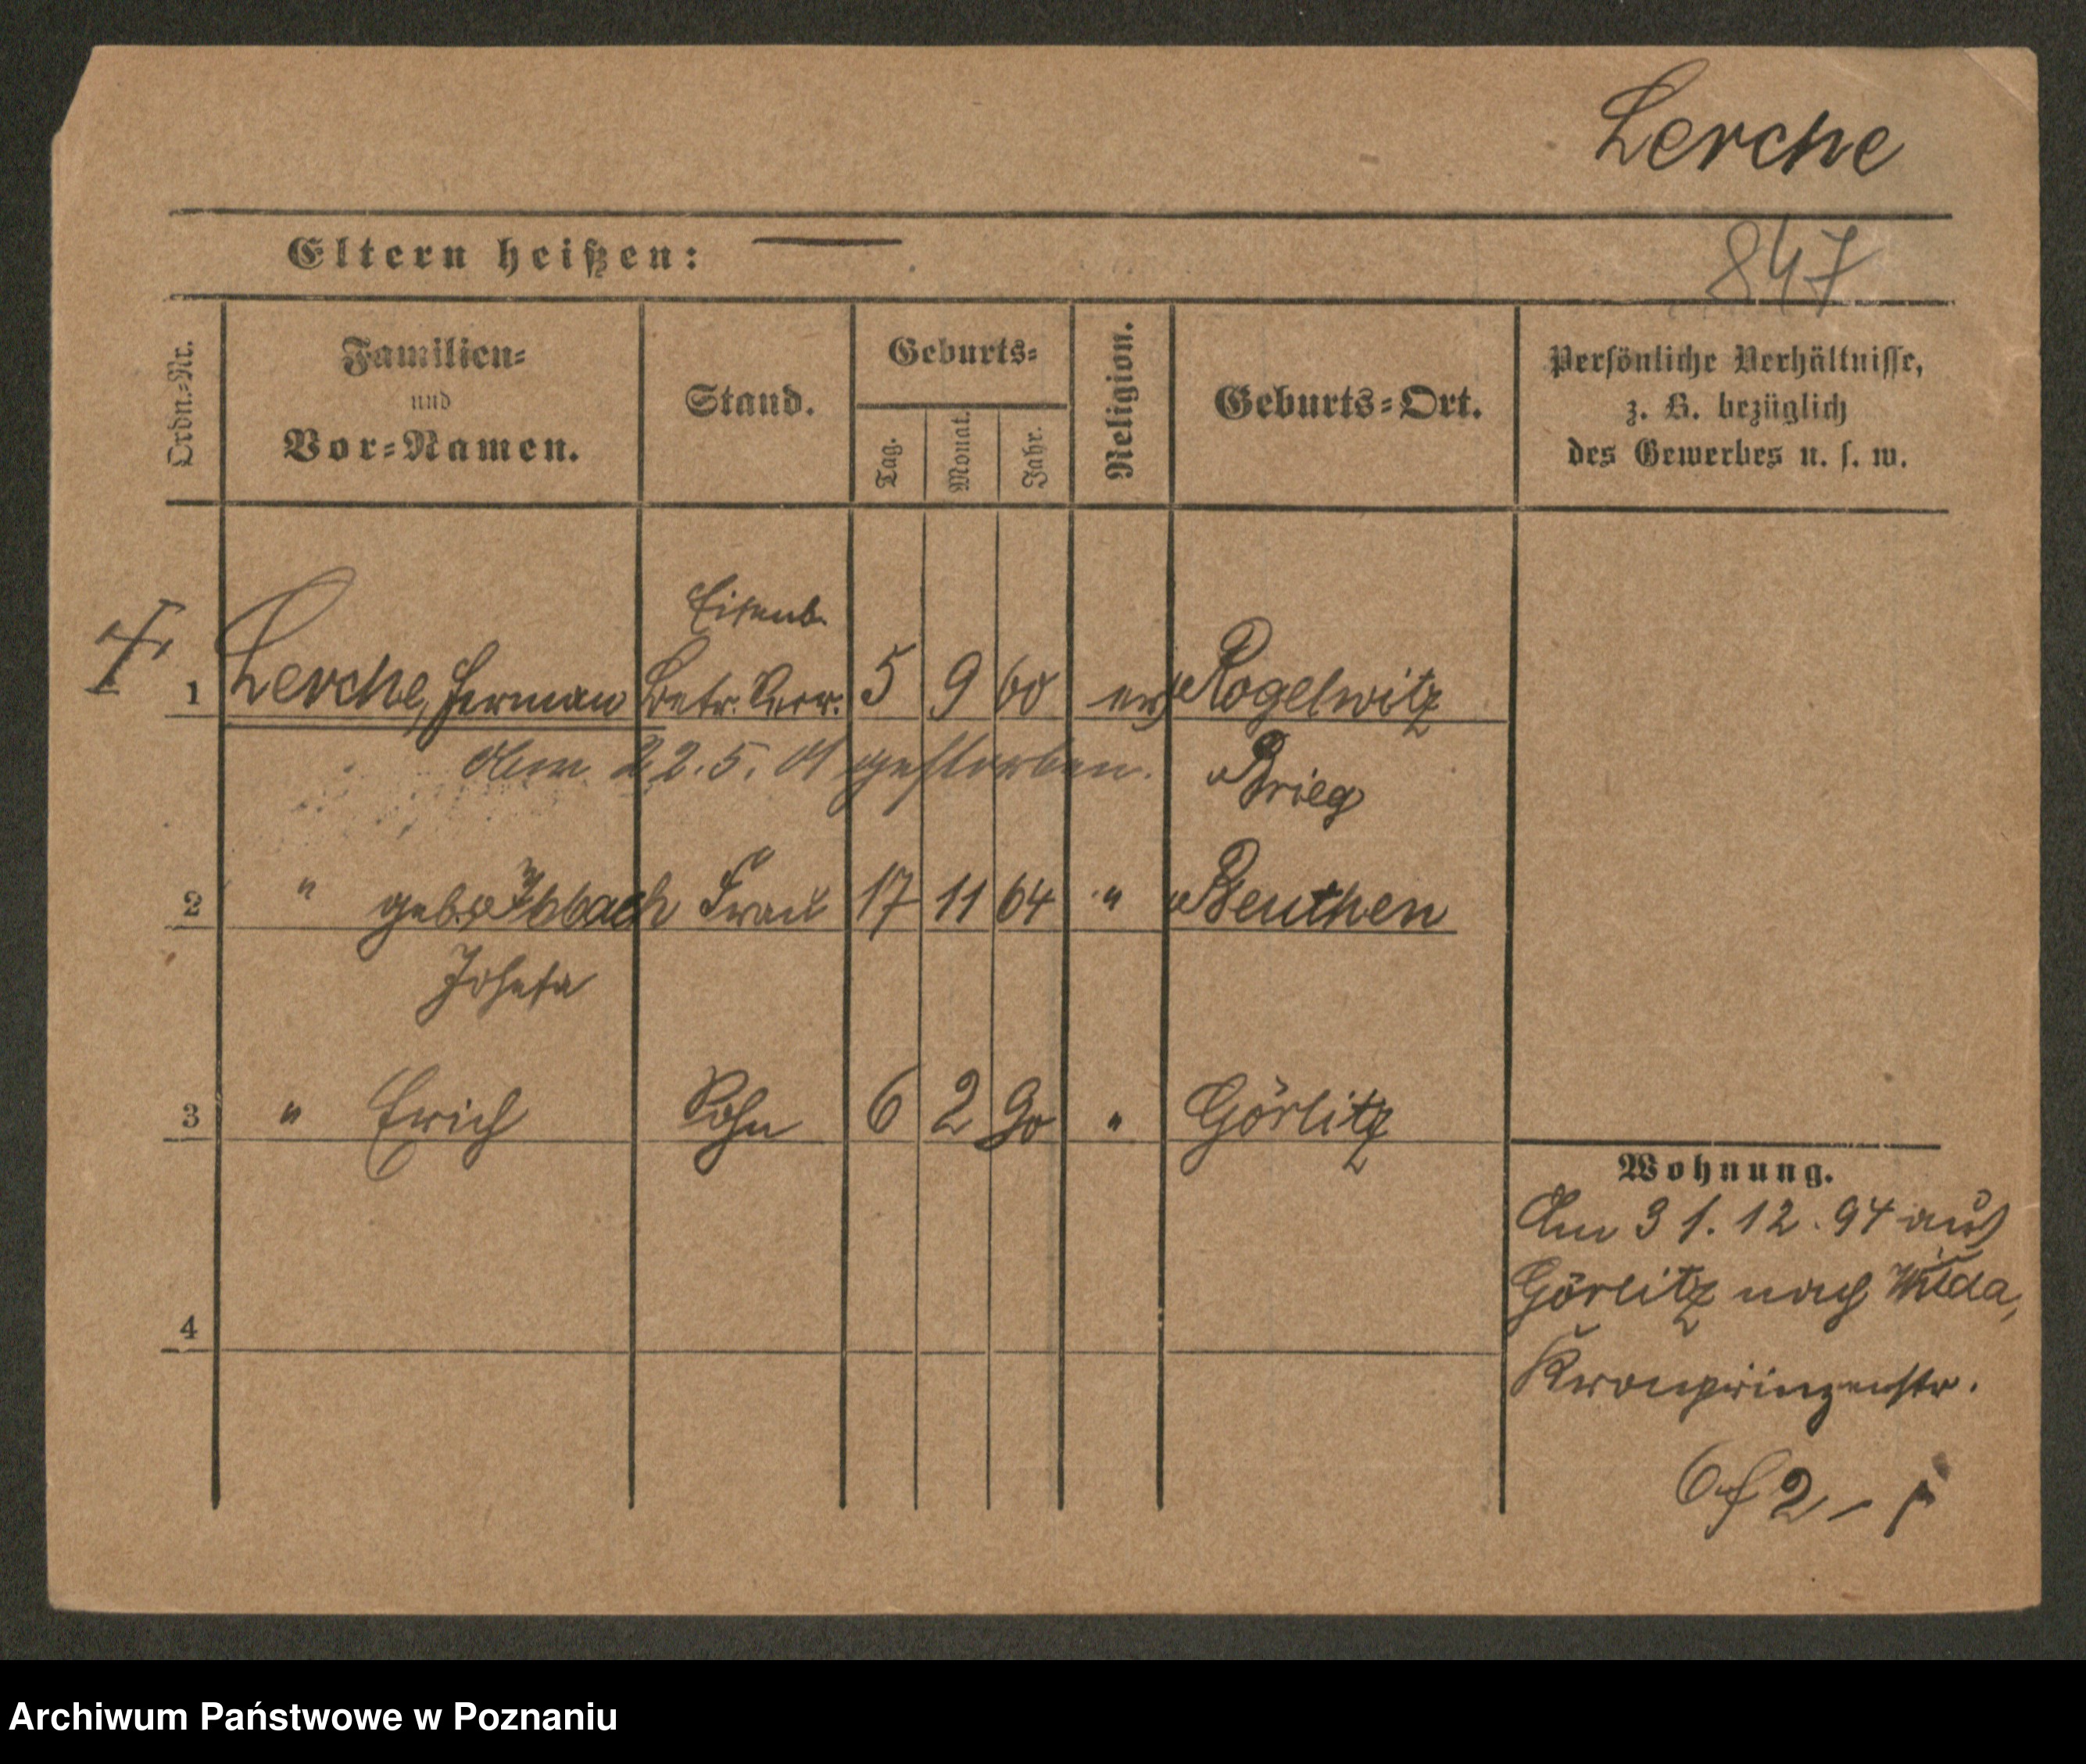 Lerche
847
Eltern heißen: —
Ordn.-Nr.
Familien-
und
Vor-Namen.
Stand.
Geburts-
Tag.
Monat.
Jahr.
Religion.
Geburts-Ort.
Persönliche Verhältnisse,
z. B. bezüglich
des Gewerbes u. s. w.
Eisenb.
1 Lerche, Herman Betr. Secr. 5 9 60 ev Rogelwitz
Am 22.5.01 gestorben. Brieg
2 " geb. Ibbach Frau 17 11 64 " Beuthen
Josefa
3 " Erich Sohn 6 2 90 " Görlitz
4
Wohnung.
Am 31.12.94 aus
Görlitz nach Wilda,
Kronprinzenstr.
Archiwum Państwowe w Poznaniu